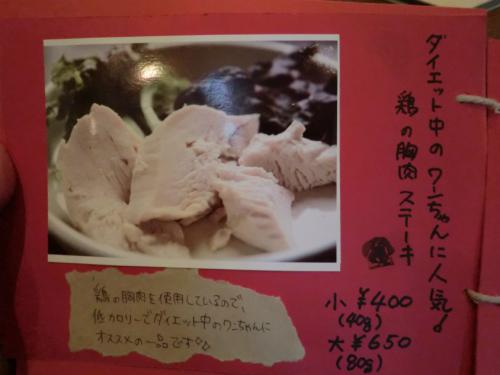 ダイエット中のワンちゃんに人気♪
鶏の胸肉ステーキ
鶏の胸肉を使用しているので、
低カロリーでダイエット中のワンちゃんに
オススメの一品です♪
小 ¥400
(40g)
大 ¥650
(80g)